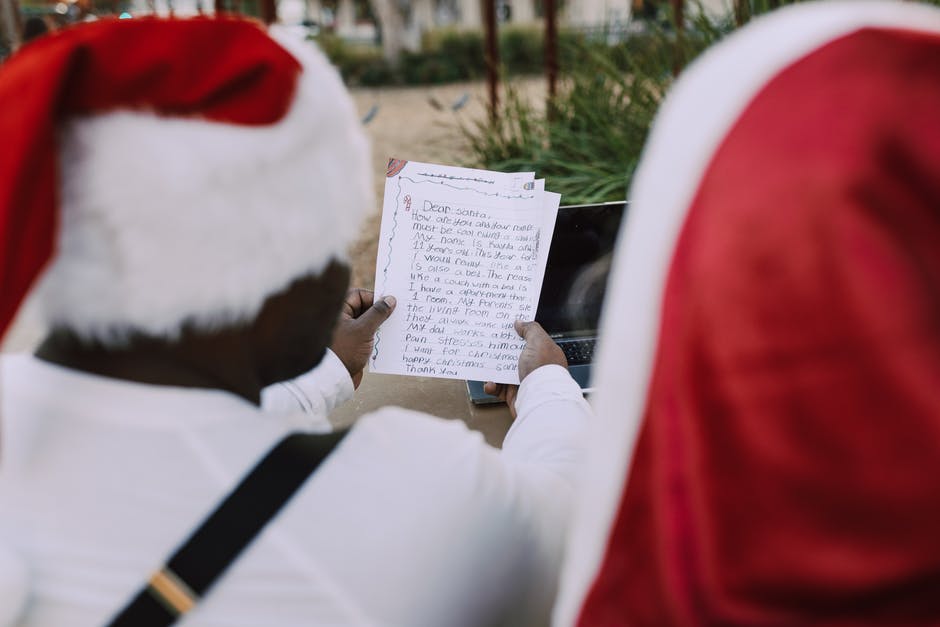 Dear santa,
How are you and your
must be cool riding a
My name is and
11 years old. This year for
I would really like a
is also a bed. The reaso
like a couch with a bed is
I have a apartment that
1 room. My Parents sle
the living room on the
they always wake up
My dad works a lot,
Pain stresses him ou
I want for christmas
happy christmas sant
Thank you